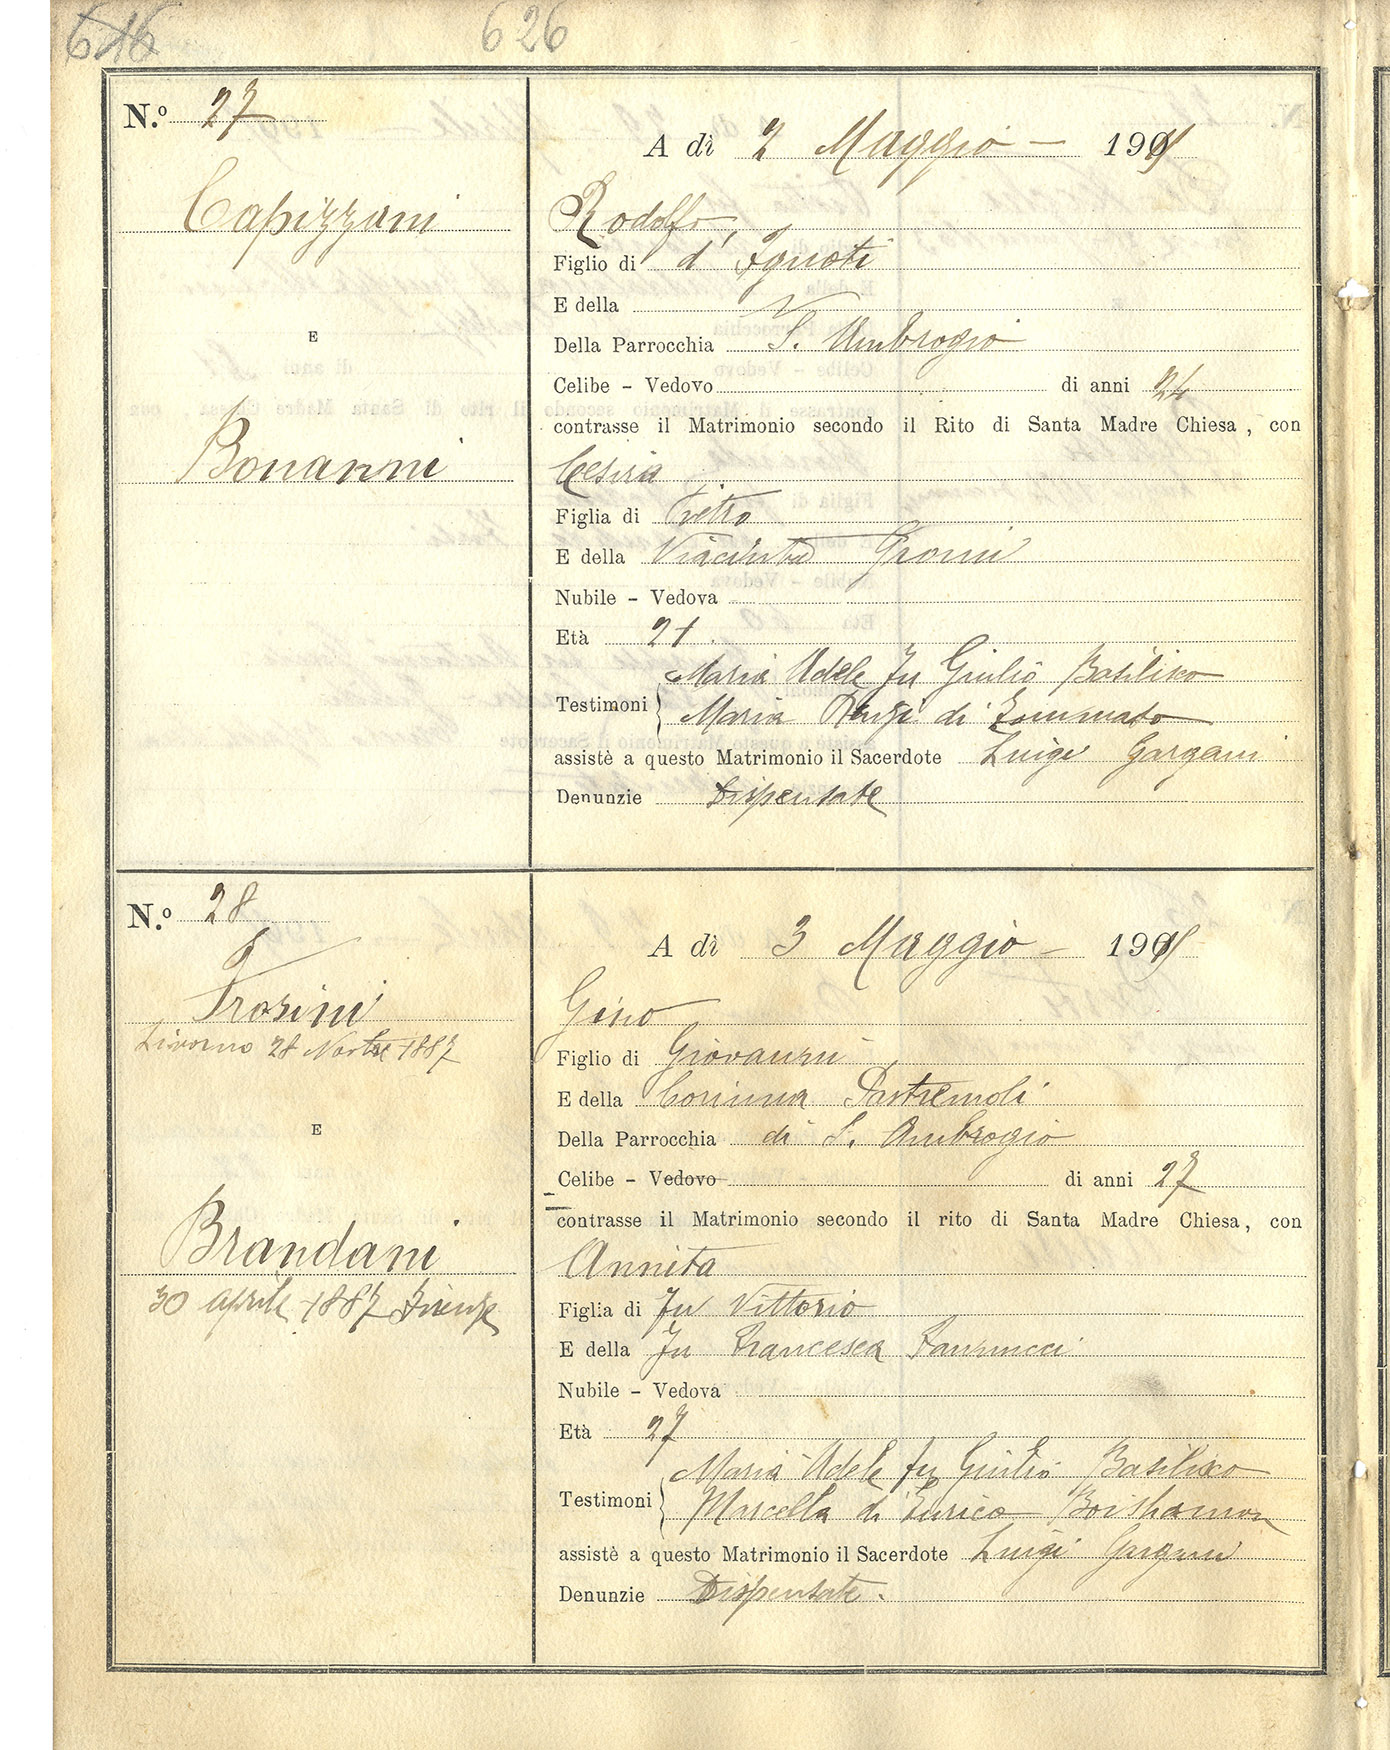 626
N.º 27
A dì 2 Maggio — 190
Capizzani
Rodolfo,
Figlio di d' Ignoti
E della
E
Della Parrocchia S. Ambrogio
Celibe – Vedovo di anni 24
contrasse il Matrimonio secondo il Rito di Santa Madre Chiesa, con
Bonanni
Cesira
Figlia di Pietro
E della
Nubile – Vedova
Età 21.
Testimoni
Maria Adele fu Giulio Basilisco
Maria di Tommaso
assistè a questo Matrimonio il Sacerdote Luigi Gargani
Denunzie Dispensate
N.º 28
A dì 3 Maggio — 190
Frosini
Gino
Livorno 28 1887
Figlio di Giovanni
E della Corinna Pastremoli
E
Della Parrocchia di S. Ambrogio
Celibe – Vedovo di anni 27
contrasse il Matrimonio secondo il rito di Santa Madre Chiesa, con
Brandani
Annita
30 aprile 1887 Firenze
Figlia di fu Vittorio
E della fu Francesca Vannucci
Nubile – Vedova
Età 27
Testimoni
Maria Adele fu Giulio Basilisco
Marcella di Enrico
assistè a questo Matrimonio il Sacerdote Luigi Gargani
Denunzie Dispensate.